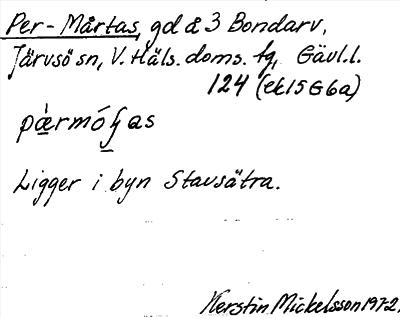 Per-Mårtas, gd å 3 Bondarv,
Järvsö sn, V. Häls. doms. fg, Gävl.l.
124 (ek15G6a)
Ligger i byn Stavsätra.
Kerstin Mickelsson 1972.